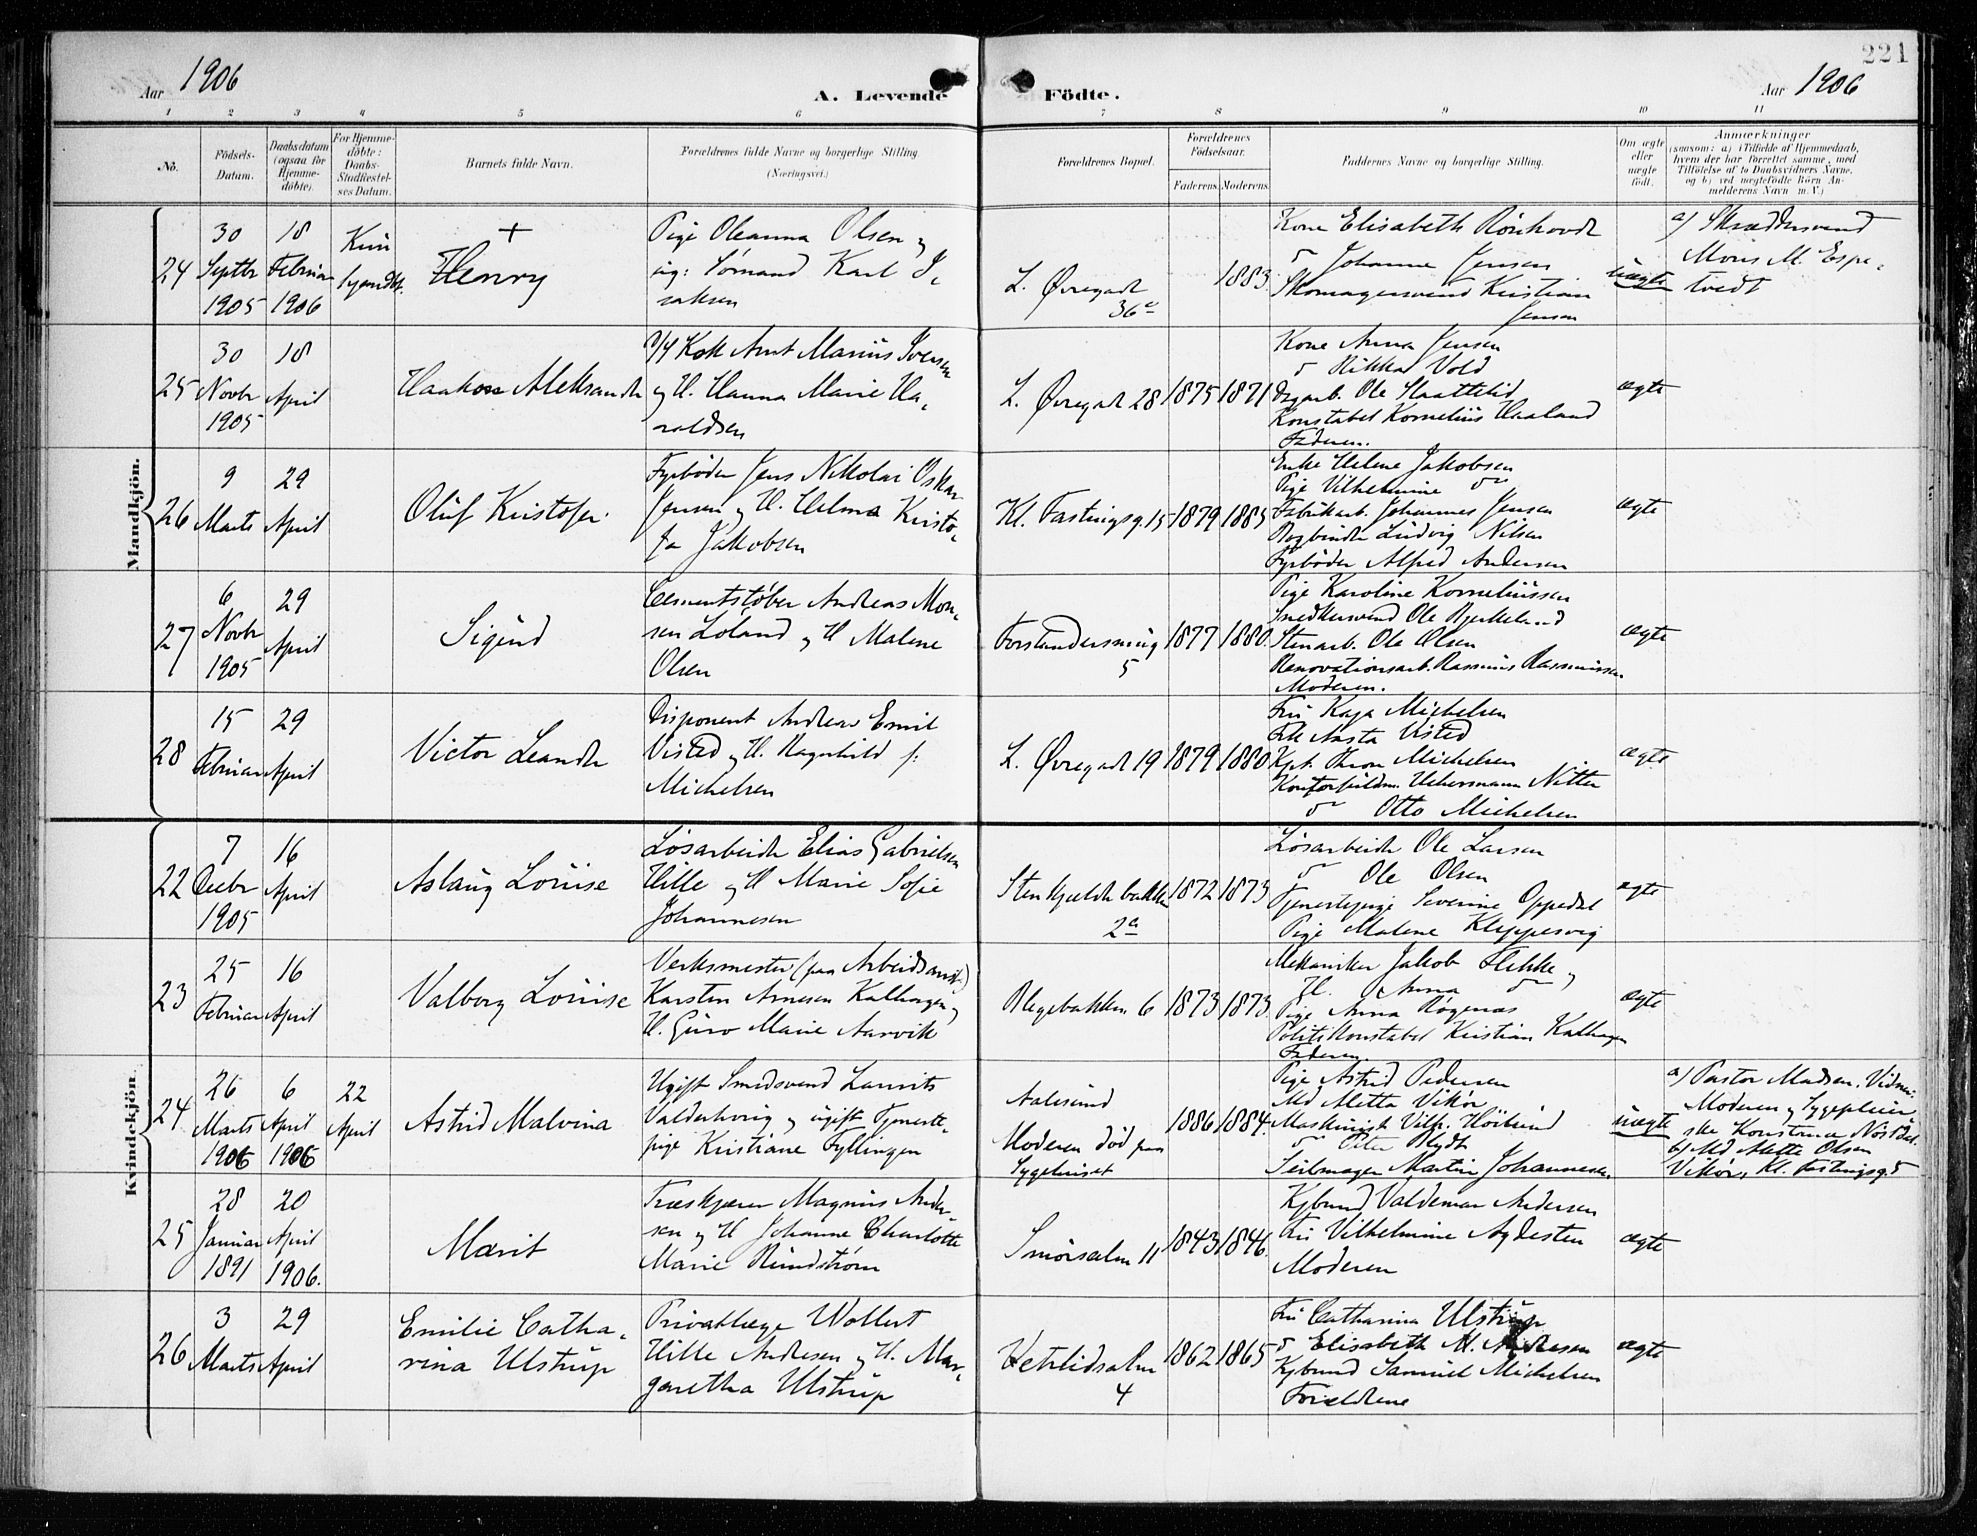 221
Aar 1906
A. Levende Födte.
Aar 1906
1 2 3 4 5 6 7 8 9 10 11
No.
Födsels-Datum.
Daabsdatum (ogsaa for Hjemme-döbte).
For Hjemme-döbte: Daabs-Stadfæstel-ses Datum.
Barnets fulde Navn.
Forældrenes fulde Navne og borgerlige Stilling (Næringsvei.)
Forældrenes Bopæl.
Forældrenes Födselsaar.
Faderens. Moderens.
Faddernes Navne og borgerlige Stilling.
Om ægte eller uægte födt.
Anmærkninger
(saasom: a) i Tilfælde af Hjemmedaab, hvem der har forrettet samme, med Tilföielse af to Daabsvidners Navne, og b) ved uægtefödte Börn Anmelderens Navn m. V.)
Mandkjön.
24
30 Septbr 1905
18 Februar 1906
Kun hjemdbt.
+
Henry
Pige Oleanna Olsen og
ug: Sømand Karl I,
saksen
L. Øvregade
36
1883
Kone Elisabeth Rönhovde
" Johanne Jensen
Skomagersvend Kristian
Jensen
uægte
a) Skræddersvend
Mons M. Espe,
tvedt
25
30 Novbr 1905
18 April
Haakon Aleksander
Kok Arnt Marius Iversen
og H. Hanna Marie Ha,
raldsen
L. Øvregade 28
1875 1871
Kone Anna Jensen
" Rikka Vold
Ole Slaattelid
Konstabel Kornelius Haaland
Faderen.
ægte
26
9 Marts
29 April
Oluf Kristofer
Fyrböder Jens Nikolai Oskar
Jensen og H. Helma Kristo,
fa Jakobsen
Kl. Fastingsg. 15
1879 1885
Enke Helene Jakobsen
Pige Vilhelmine "
Fabrikarb. Johannes Jensen
Bogbinder Ludvig Nilsen
Fyrböder Alfred Andersen
ægte
27
6 Novbr 1905
29 April
Sigurd
Cementstöber Andreas Mon,
sen Loland og H Malene
Olsen
Forstandersmug
5
1877 1880.
Pige Karoline Korneliussen
Snedkersvend Ole Bjerkelund
Stenarb. Ole Olsen
Renovationsarb. Rasmus Rasmussen
Moderen.
ægte
28
15 Februar
29 April
Victor Leander
Disponent Andreas Emil
Visted og H. Ragnhild f.
Michelsen
L. Øvregade 19
1879 1880
Fru Kaja Michelsen
Frk Aasta Visted
Kpt. Michelsen
Kontorfuldm. Uchermann Nitter
" Otto Michelsen
ægte
Kvindekjön
22
7 Decbr 1905
16 April
Aslaug Louise
Lösarbeider Elias Gabrielsen
Hille og H Marie Sofie
Johannesen
Stenkjeldebakken
2a
1872 1873
Lösarbeider Ole Larsen
" Ole Olsen
Tjenestepige Severine Oppedal
Pige Malene Kleppesvig
ægte
23
25 Februar
16 April
Valborg Louise
Verksmester (paa Arbeidsanst.)
Karsten Arnesen Kalhagen og
H. Guro Marie Aarvik
Blegebakken 6
1873 1873
Mekaniker Jakob Flekke og
H. Anna "
Pige Anna Røgenæs
Politikonstabel Kristian Kalhagen
Faderen
ægte
24
26 Marts 1906
6 April 1906
22 April
Astrid Malvina
Ugift Smedsvend Laurits
Valderhoug og ugift Tjeneste,
pige Kristiane Fyllingen
Aalesund
Moderen död paa
Sygehuset
1886 1884.
Pige Astrid Pedersen
Md Metta Vikör
Maskinist Vilh. Höilund
" Peter Rydt
Seilmager Martin Johannesen
uægte
a) Pastor Madsen. Vidner:
Moderen og Sygepleier,
ske Konstanse Nöstdal
b) Md Mette Olsen
Vikör, Kl. Fastingsg. 5
25
28 Januar 1891
20 April 1906.
Marit
Træskjærer Magnus Ander,
sen og H Johanne Charlotte
Marie Rundström
Smörsalm 11
1843 1846.
Kjbmnd Valdemar Andersen
Fru Vilhelmine Aydesten
Moderen
ægte
26
3 Marts
29 April
Emilie Catha,
rina Ulstrup
Privatlæge Wollert
Hille Andresen og H. Mar,
garetha Ulstrup
Ketlidsalm
4
1862 1865
Fru Catharina Ulstrup
" Elisabeth M. Andresen
Kjbmnd Samuel Michelsen
Forældrene
ægte